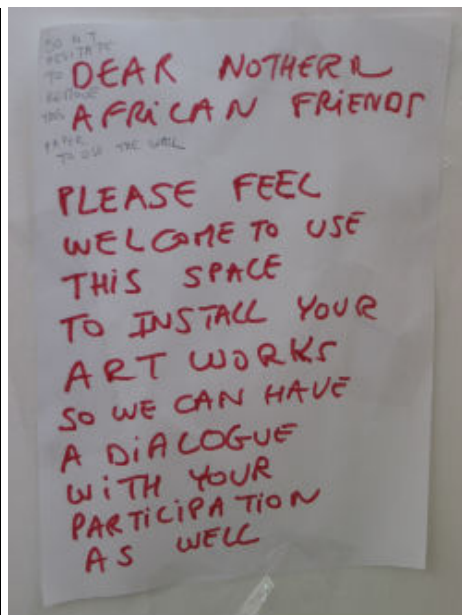 DO NOT
HESITATE
TO
REMOVE
THIS
PAPER
TO USE THE WALL
DEAR NOTHERN
AFRICAN FRIENDS
PLEASE FEEL
WELCOME TO USE
THIS SPACE
TO INSTALL YOUR
ART WORKS
SO WE CAN HAVE
A DIALOGUE
WITH YOUR
PARTICIPATION
AS WELL